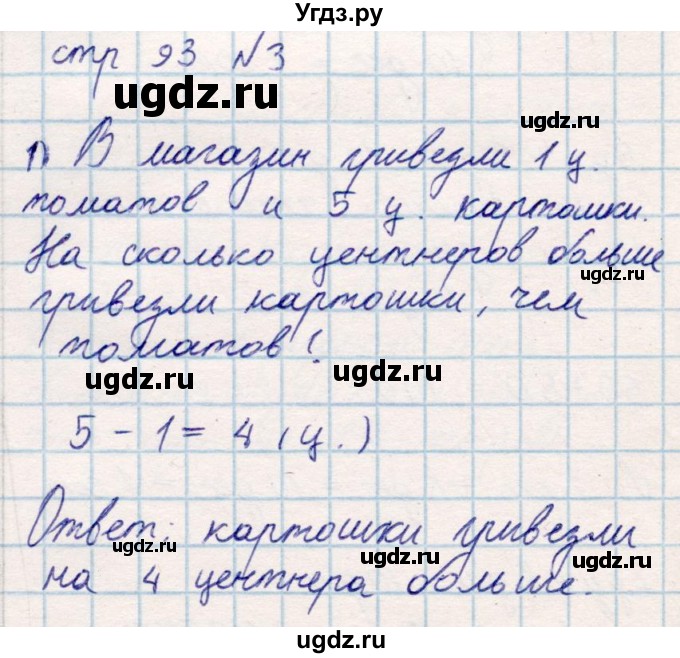 Угдз.ру
стр 93 №3
ugdz.ru
ugdz.ru
1) В магазин привезли 1 ц.
томатов и 5 ц. картошки.
ugdz.ru
На сколько центнеров больше
ugdz.ru
привезли картошки, чем
томатов?
ugdz.ru
ugdz.ru
5 - 1 = 4 (ц.)
Ответ: картошки привезли
ugdz.ru
ugdz.ru
на 4 центнера больше.
ugdz.ru
ugdz.ru